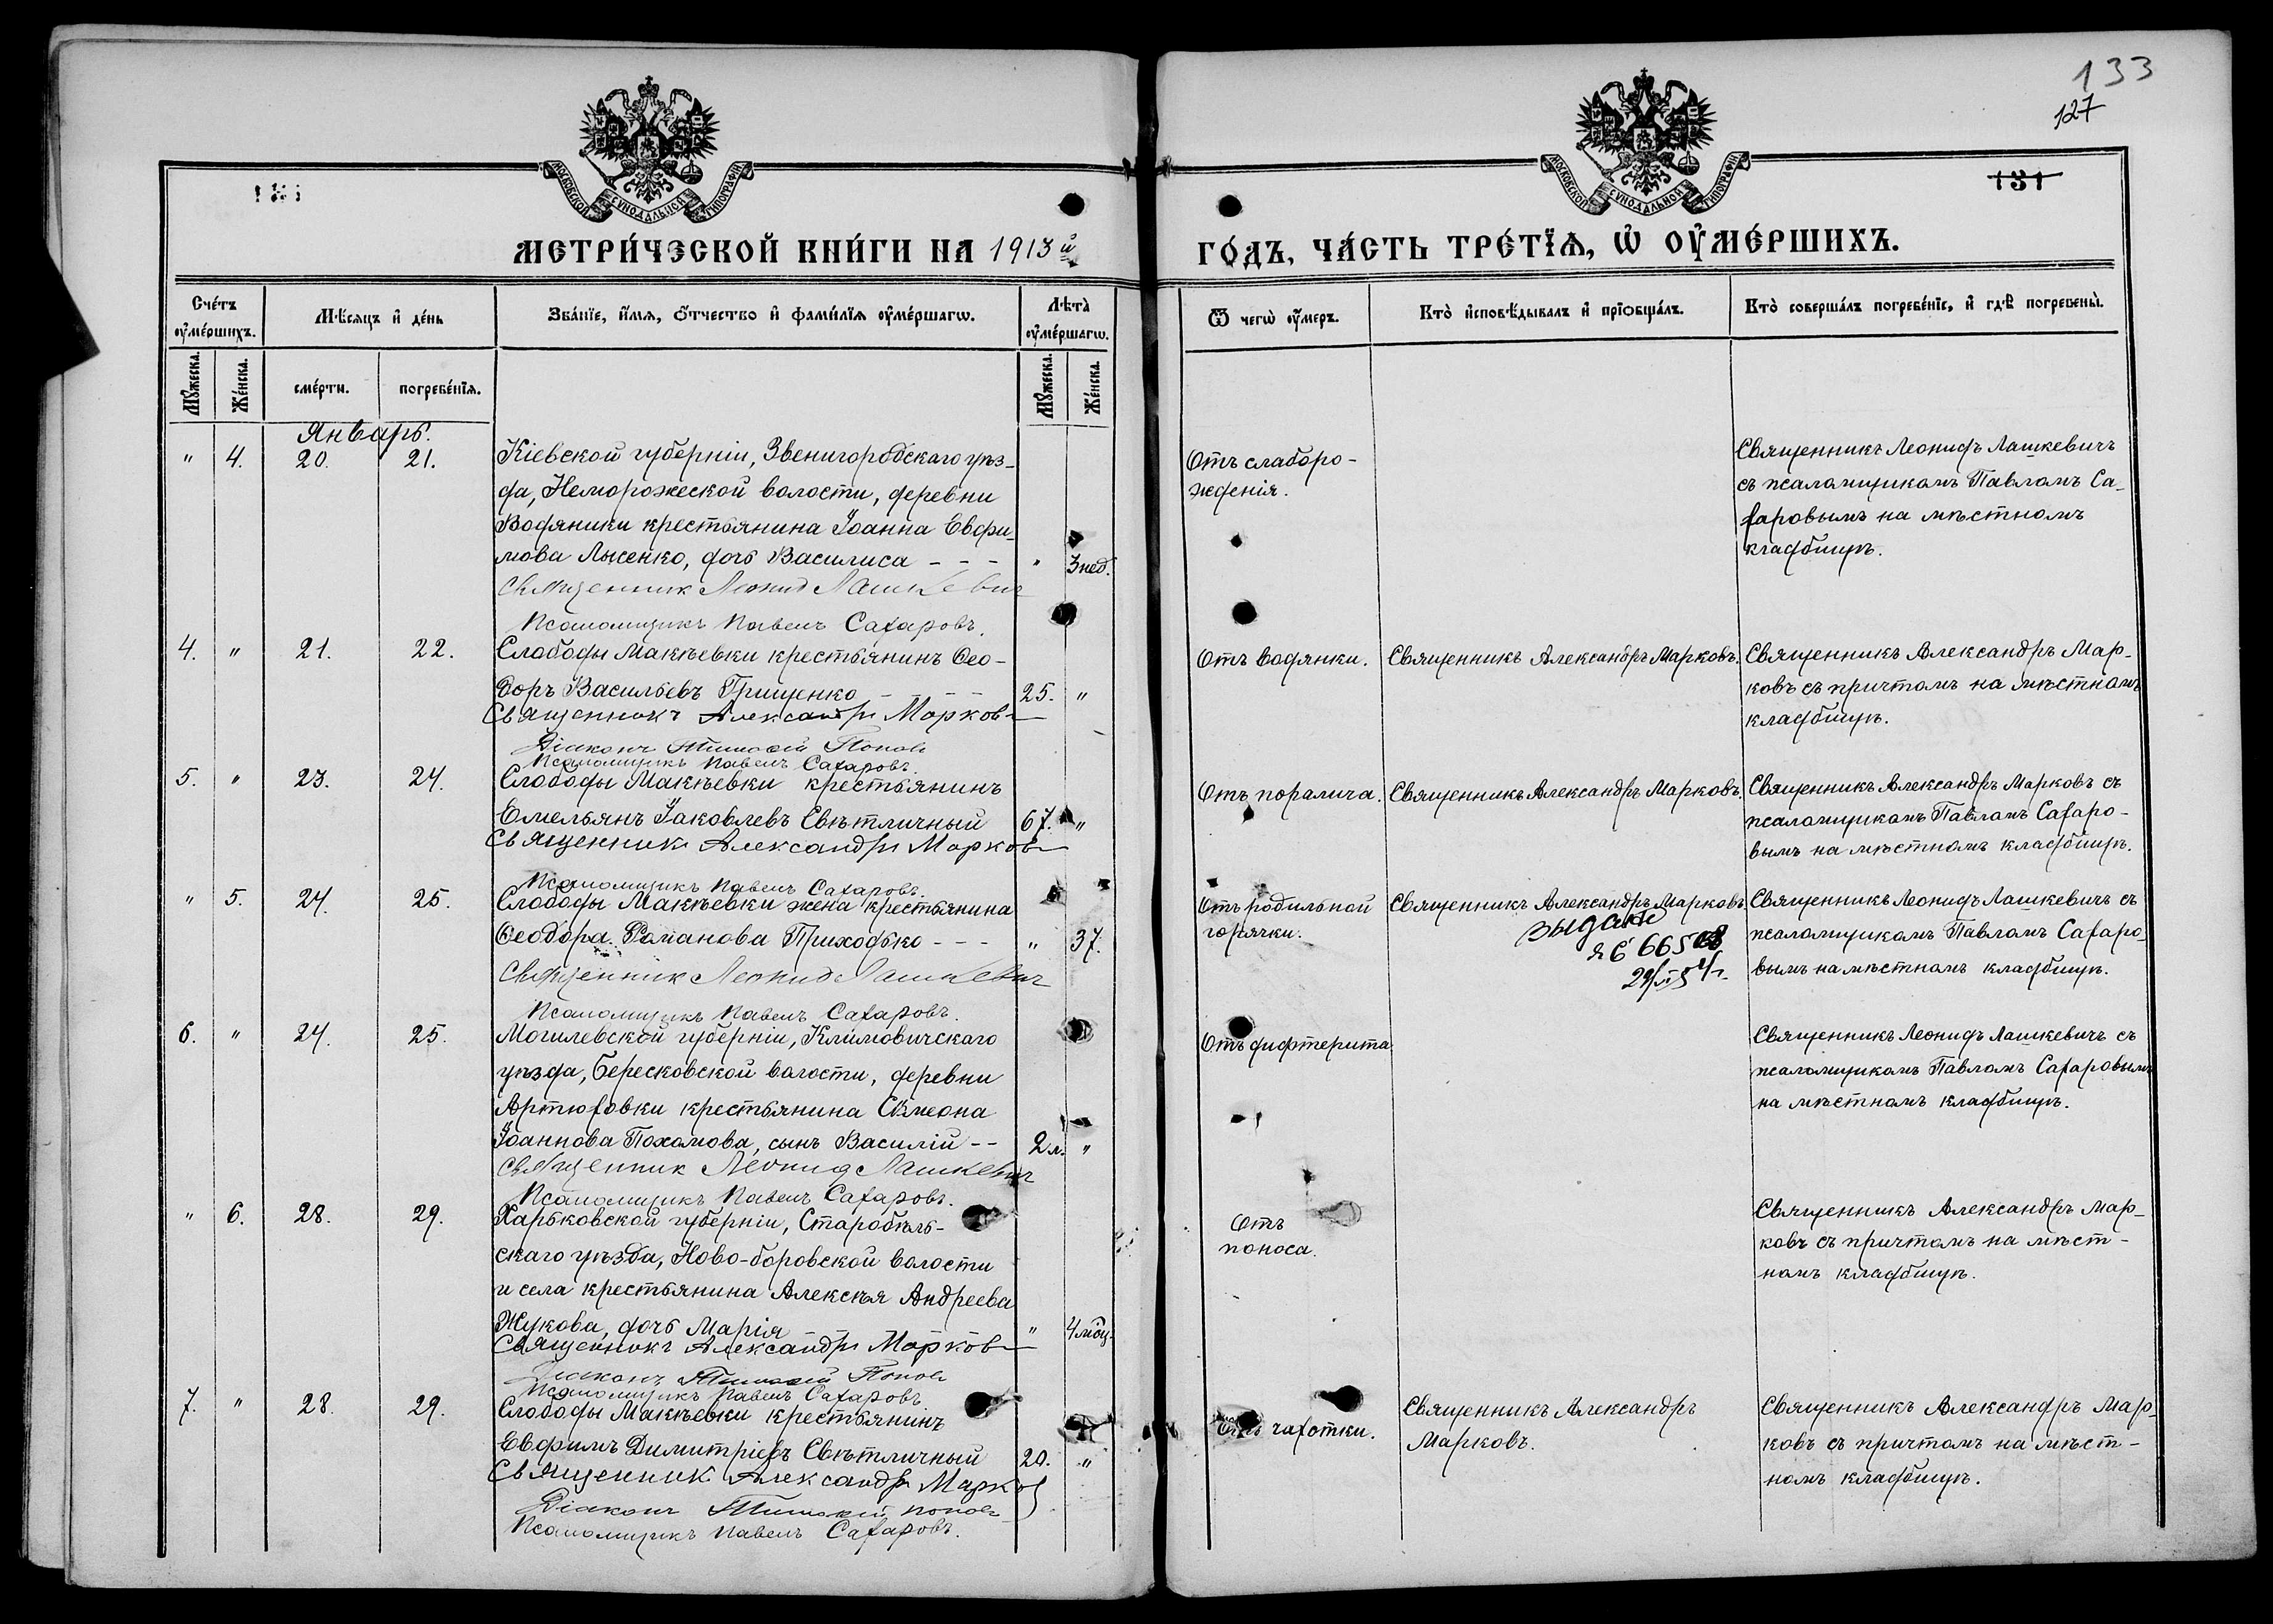 133
127
131
МОСКОВСКОЙ СѴНОДАЛЬНОЙ ТИПОГРАФІИ
МОСКОВСКОЙ СѴНОДАЛЬНОЙ ТИПОГРАФІИ
МЕТРИ́ЧЕСКОЙ КНИ́ГИ НА 1913й
ГО́ДЪ, ЧА́СТЬ ТРЕ́ТІѦ, Ѡ҆ ОУ҆МЕ́РШИХЪ.
Сче́тъ оу҆ме́ршихъ.
Мѣ́сяцъ и҆ де́нь
Зва́нїе, и҆́мѧ, ѻ҆́тчество и҆ фами́лїѧ оу҆ме́ршагѡ.
Лѣта̀ оу҆ме́ршагѡ.
Ѿ чегѡ̀ оу҆́меръ.
Кто̀ и҆сповѣ́дывалъ и҆ прїѡбща́лъ.
Кто̀ соверша́лъ погребе́нїе, и҆ гдѣ̀ погребены̀.
Мꙋ́жеска.
Же́нска.
сме́рти.
погребе́нїѧ.
Мꙋ́жеска.
Же́нска.
Январь.
" 4. 20. 21.
Кіевской губерніи, Звенигородскаго уѣз-
да, Неморожеской волости, деревни
Водяники крестьянина Іоанна Евфи-
мова Лысенко, дочь Василиса - - - " 3 нед.
Священник Леонид Лашкевич
Псаломщикъ Павелъ Сахаровъ.
Отъ слаборо-
жденія.
Священникъ Леонидъ Лашкевичъ
съ псаломщикомъ Павломъ Са-
харовымъ на мѣстномъ
кладбищѣ.
4. " 21. 22.
Слободы Макѣевки крестьянинъ Ѳео-
доръ Васильевъ Грищенко - - - - 25. "
Священникъ Александръ Марковъ
Діаконъ Тимоѳей Поповъ
Псаломщикъ Павелъ Сахаровъ.
Отъ водянки.
Священникъ Александръ Марковъ.
Священникъ Александръ Мар-
ковъ съ причтомъ на мѣстномъ
кладбищѣ.
5. " 23. 24.
Слободы Макѣевки крестьянинъ
Емельянъ Іаковлевъ Свѣтличный 67. "
Священникъ Александръ Марковъ
Псаломщикъ Павелъ Сахаровъ.
Отъ поралича.
Священникъ Александръ Марковъ.
Священникъ Александръ Марковъ съ
псаломщикомъ Павломъ Сахаро-
вымъ на мѣстномъ кладбищѣ.
" 5. 24. 25.
Слободы Макѣевки жена крестьянина
Ѳеодора Романова Приходько - - - " 37.
Священник Леонид Лашкевич
Псаломщикъ Павелъ Сахаровъ.
Отъ родильной
горячки.
Священникъ Александръ Марковъ.
Священникъ Леонидъ Лашкевичъ съ
псаломщикомъ Павломъ Сахаро-
вымъ на мѣстномъ кладбищѣ.
6. " 24. 25.
Могилевской губерніи, Климовичскаго
уѣзда, Бересковской волости, деревни
Артюховки крестьянина Сѵмеона
Іоаннова Похомова, сынъ Василій - - 2 л. "
Священник Леонид Лашкевич
Псаломщикъ Павелъ Сахаровъ.
Отъ дифтерита
Священникъ Леонидъ Лашкевичъ съ
псаломщикомъ Павломъ Сахаровымъ
на мѣстномъ кладбищѣ.
" 6. 28. 29.
Харьковской губерніи, Старобѣль-
скаго уѣзда, Ново-боровской волости
и села крестьянина Алексѣя Андреева
Жукова, дочь Марія - - - - " 4 мѣц.
Священникъ Александръ Марковъ
Діаконъ Тимоѳей Поповъ
Псаломщикъ Павелъ Сахаровъ.
Отъ
поноса.
Священникъ Александръ Мар-
ковъ съ причтомъ на мѣст-
номъ кладбищѣ.
7. " 28. 29.
Слободы Макѣевки крестьянинъ
Евфимъ Димитріевъ Свѣтличный 20. "
Священник Александръ Марков
Діаконъ Тимоѳей Поповъ
Псаломщикъ Павелъ Сахаровъ.
Отъ чахотки.
Священникъ Александръ
Марковъ.
Священникъ Александръ Мар-
ковъ съ причтомъ на мѣст-
номъ кладбищѣ.